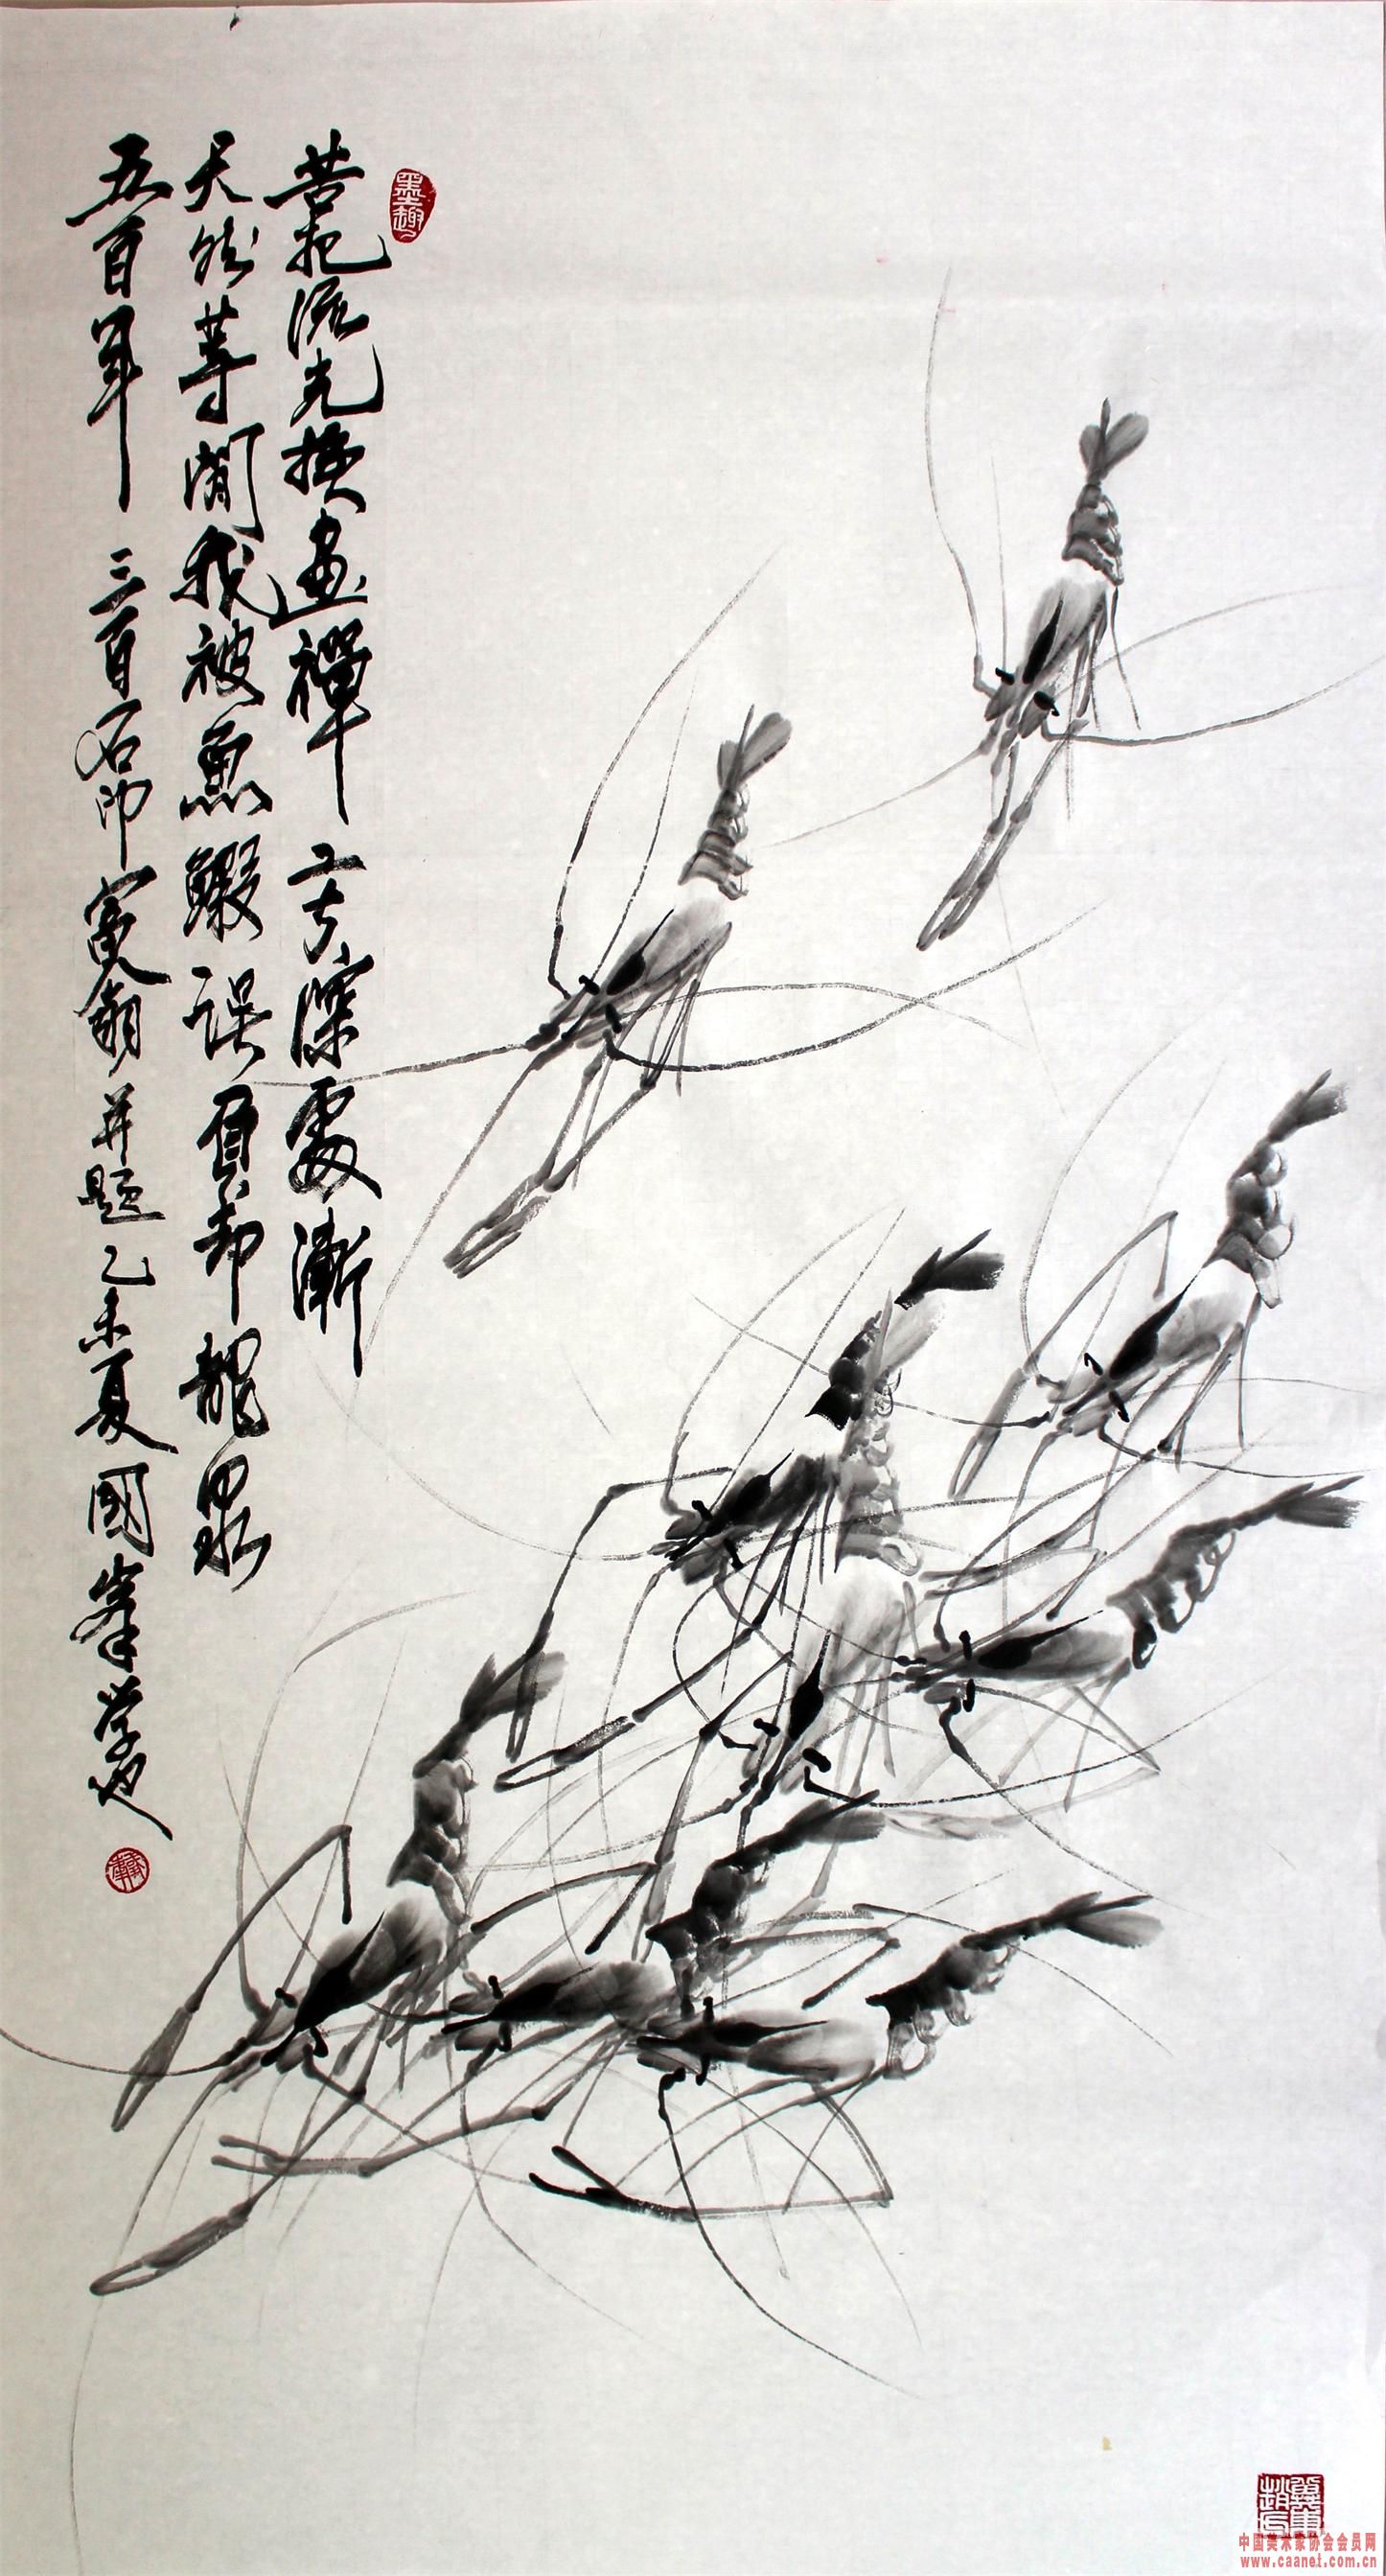 墨趣
苦把流光換畫禪工夫深處漸
天然等閒我被魚鰕误負却龍泉
五百年 三百石印富翁并題乙未夏國峯学也
中国美术家协会会员网
www.caanet.com.cn